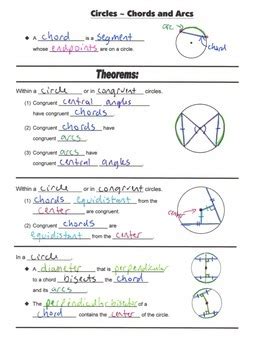 Circles – Chords and Arcs
arc
◆ A chord is a segment
whose endpoints are on a circle.
chord
Theorems:
Within a circle or in congruent circles.
(1) Congruent central angles
have congruent chords.
(2) Congruent chords have
congruent arcs.
(3) Congruent arcs have
congruent central angles.
Within a circle or in congruent circles.
(1) Chords equidistant from the
center are congruent
(2) Congruent chords are
equidistant from the center.
center
In a circle.
◆ A diameter that is perpendicular
to a chord bisects the chord
and its arcs
◆ The perpendicular bisector of a
chord contains the center of the circle.